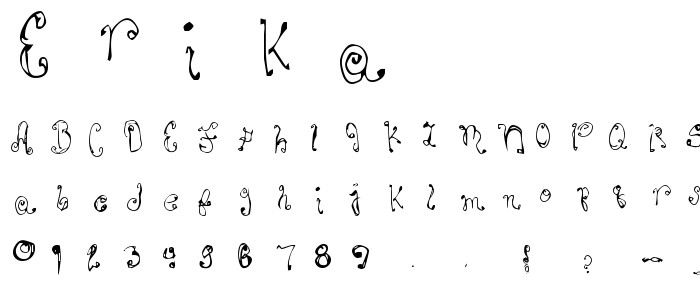 E r i K a
A B C D E F F h I J K L M N O P Q R S
a b c d e f g h i j K l m n o p q r s
0 1 2 3 4 5 6 7 8 9 . , ! ? -